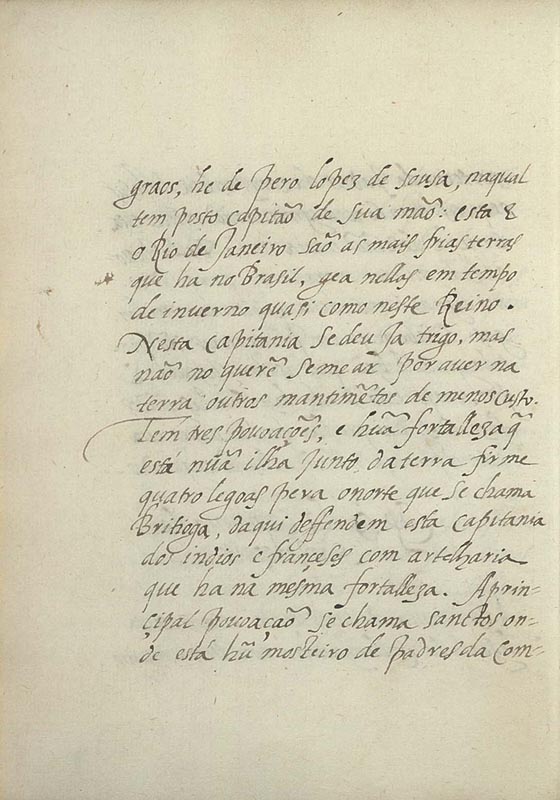 graos, he de pero lopez de Sousa, naqual
tem posto capitaõ de sua maõ: esta &
o Rio de Janeiro saõ as mais frias terras
que ha no Brasil, gea nellas em tempo
de inverno quasi como neste Reino.
Nesta capitania se deu Ja trigo, mas
naõ no querẽ semear por aver na
terra outros mantimẽtos de menos custo.
Tem tres povoações, e huã fortalleza q̃
está nuã ilha junto da terra firme
quatro legoas pera o norte que se chama
Britioga, daqui deffendem esta capitania
dos indios e françeses com artelharia
que ha na mesma fortalleza. A prin-
çipal povoaçaõ se chama sanctos on-
de está hũ mosteiro de padres da Com-